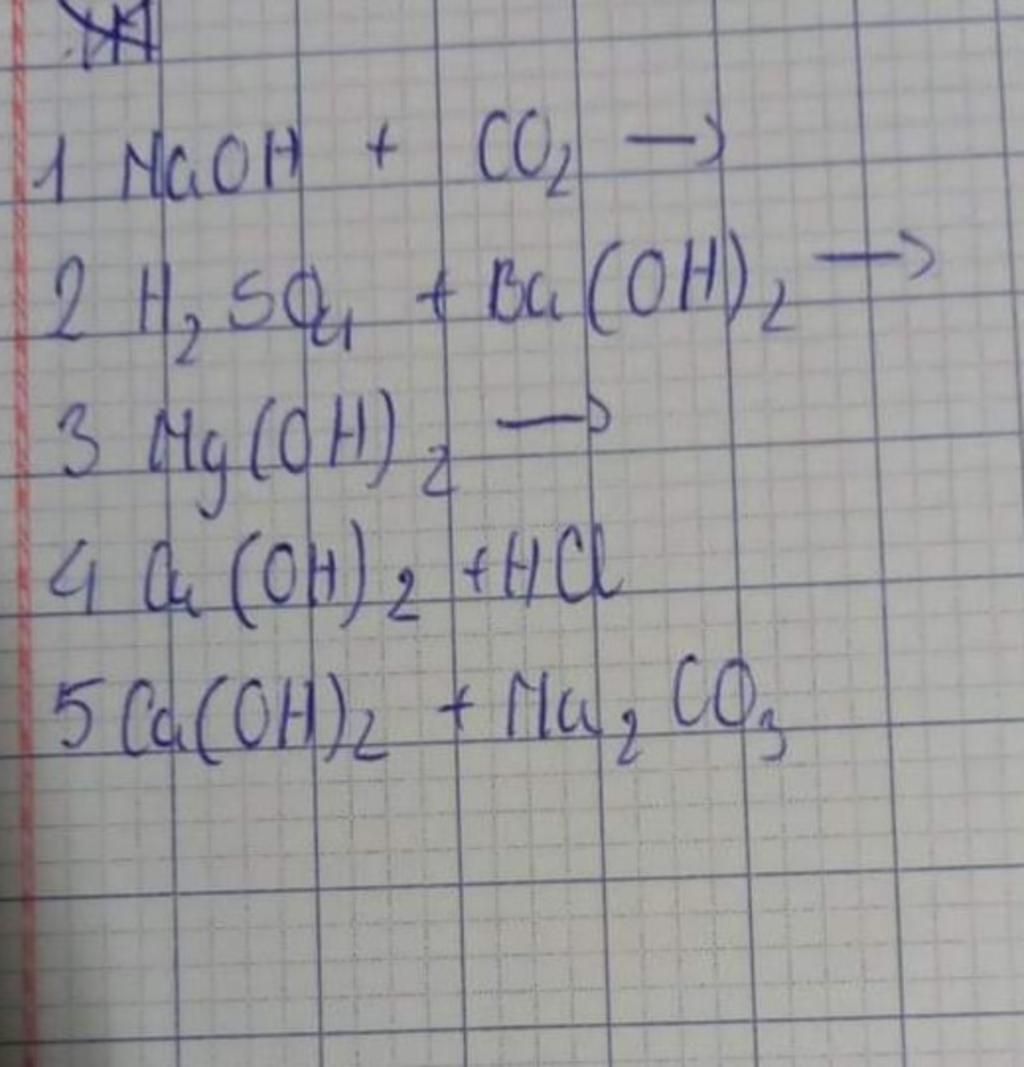 1 NaOH + CO₂ →
2 H₂SO₄ + Ba(OH)₂ →
3 Mg(OH)₂ →
4 Cu(OH)₂ + HCl
5 Ca(OH)₂ + Na₂CO₃